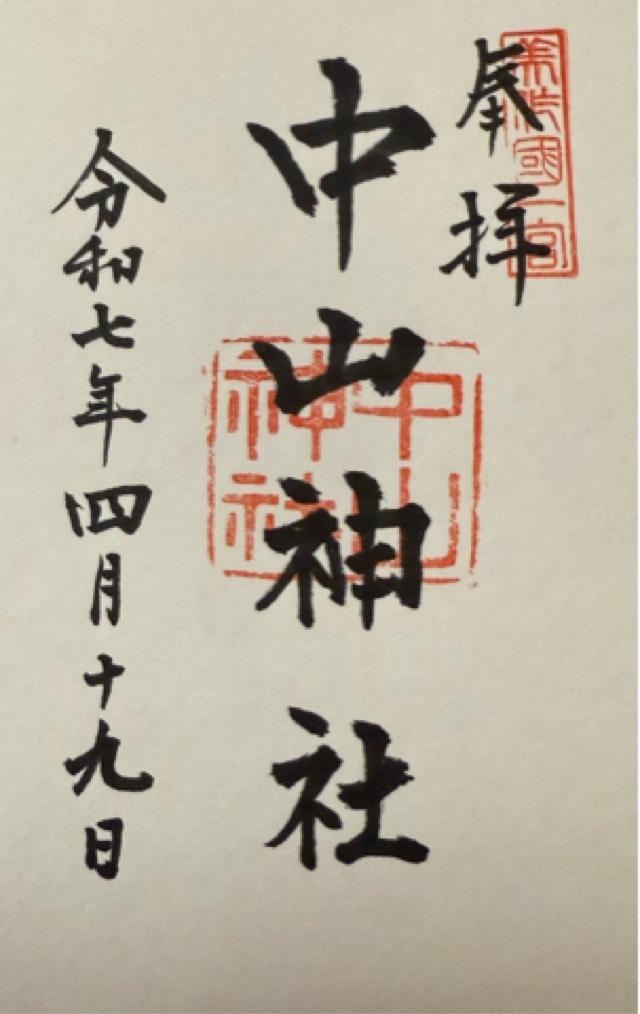 美作國一宮
奉拝
中山神社
中山神社
令和七年四月十九日